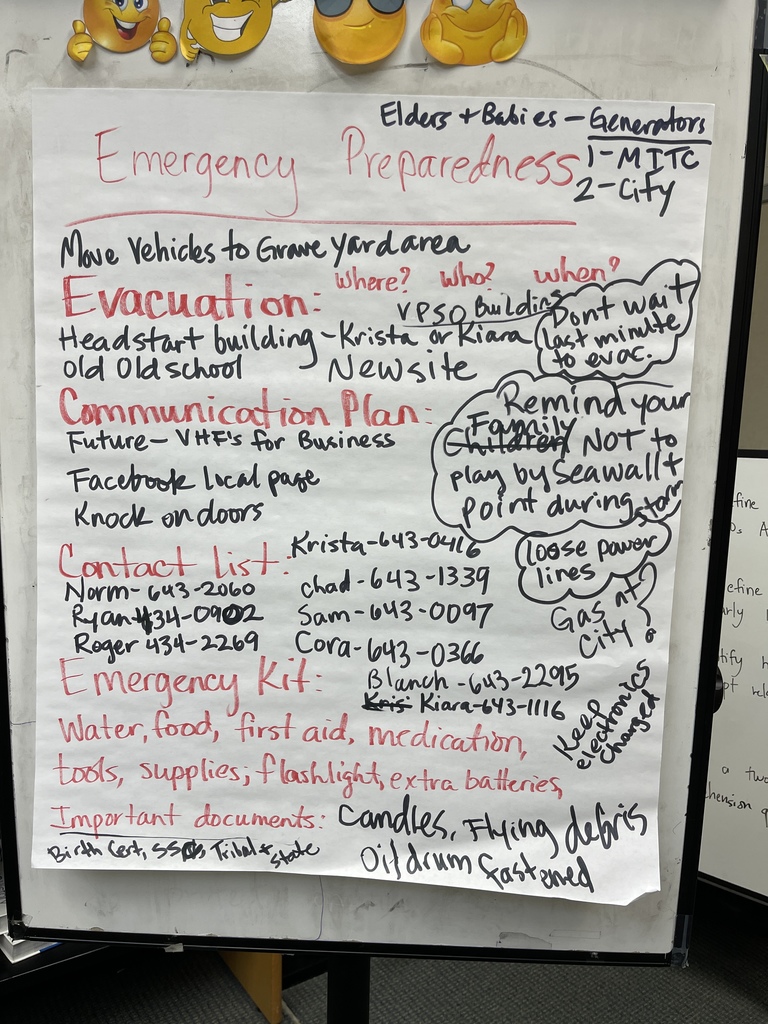 Elders + Babies - Generators
1-MITC
2-City
Emergency Preparedness
Move Vehicles to Grave yard area
Evacuation: where? who? when?
VPSO Building
Headstart building - Krista or Kiara
Old Old school Newsite
Dont wait
last minute
to evac.
Communication Plan:
Future - VHF's for Business
Facebook local page
Knock on doors
Remind your
Family
Children NOT to
play by Seawall +
point during storm
loose power
lines
Gas at
City?
Contact list:
Norm - 643-2060
Ryan 434-0902
Roger 434-2269
Krista - 643-0416
chad - 643-1339
Sam - 643-0097
Cora - 643-0366
Blanch - 643-2295
Kris Kiara - 643-1116
Keep
electronics
charged
Emergency Kit:
Water, food, first aid, medication,
tools, supplies; flashlight, extra batteries,
Important documents: Candles, Flying debris
Birth Cert, SS, Tribal + state
Oil drum fastened
fine
efine
tify
a two